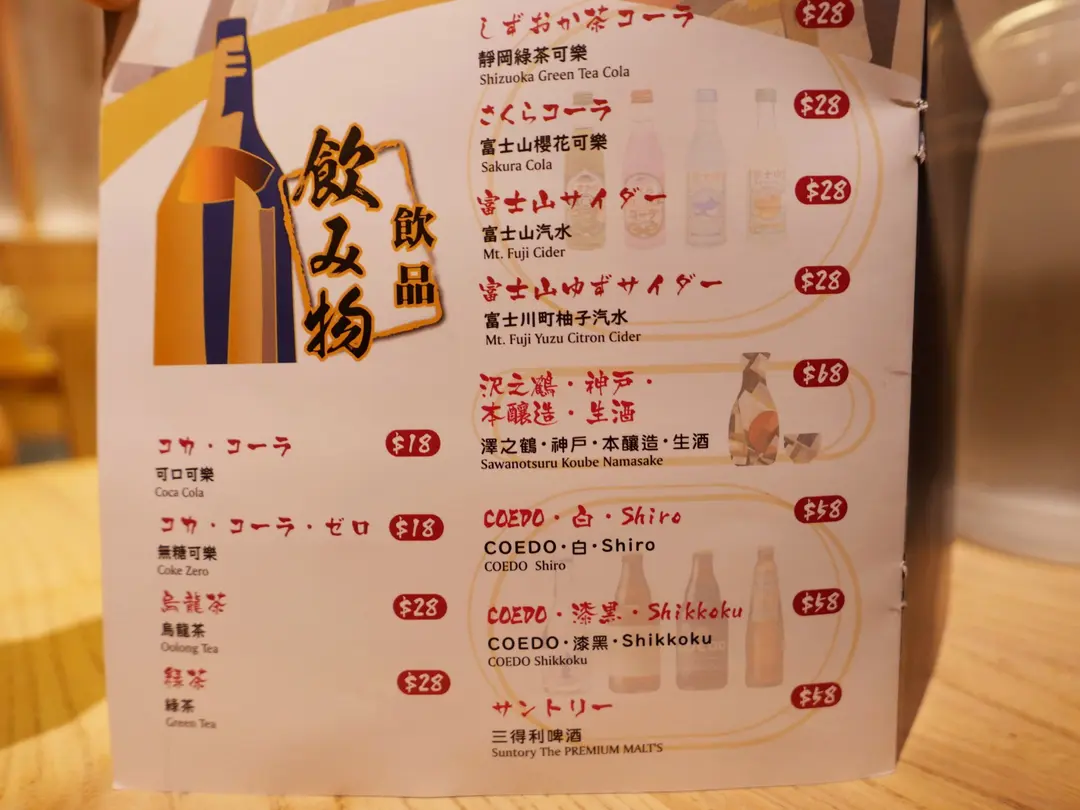 飲み物
飲品
コカ・コーラ $18
可口可樂
Coca Cola
コカ・コーラ・ゼロ $18
無糖可樂
Coke Zero
烏龍茶 $28
烏龍茶
Oolong Tea
緑茶 $28
綠茶
Green Tea
しずおか茶コーラ $28
靜岡綠茶可樂
Shizuoka Green Tea Cola
さくらコーラ $28
富士山櫻花可樂
Sakura Cola
富士山サイダー $28
富士山汽水
Mt. Fuji Cider
富士山ゆずサイダー $28
富士川町柚子汽水
Mt. Fuji Yuzu Citron Cider
沢之鶴・神戸・ $68
本釀造・生酒
澤之鶴・神戶・本釀造・生酒
Sawanotsuru Koube Namasake
COEDO・白・Shiro $58
COEDO・白・Shiro
COEDO Shiro
COEDO・漆黒・Shikkoku $58
COEDO・漆黑・Shikkoku
COEDO Shikkoku
サントリー $58
三得利啤酒
Suntory The PREMIUM MALT'S